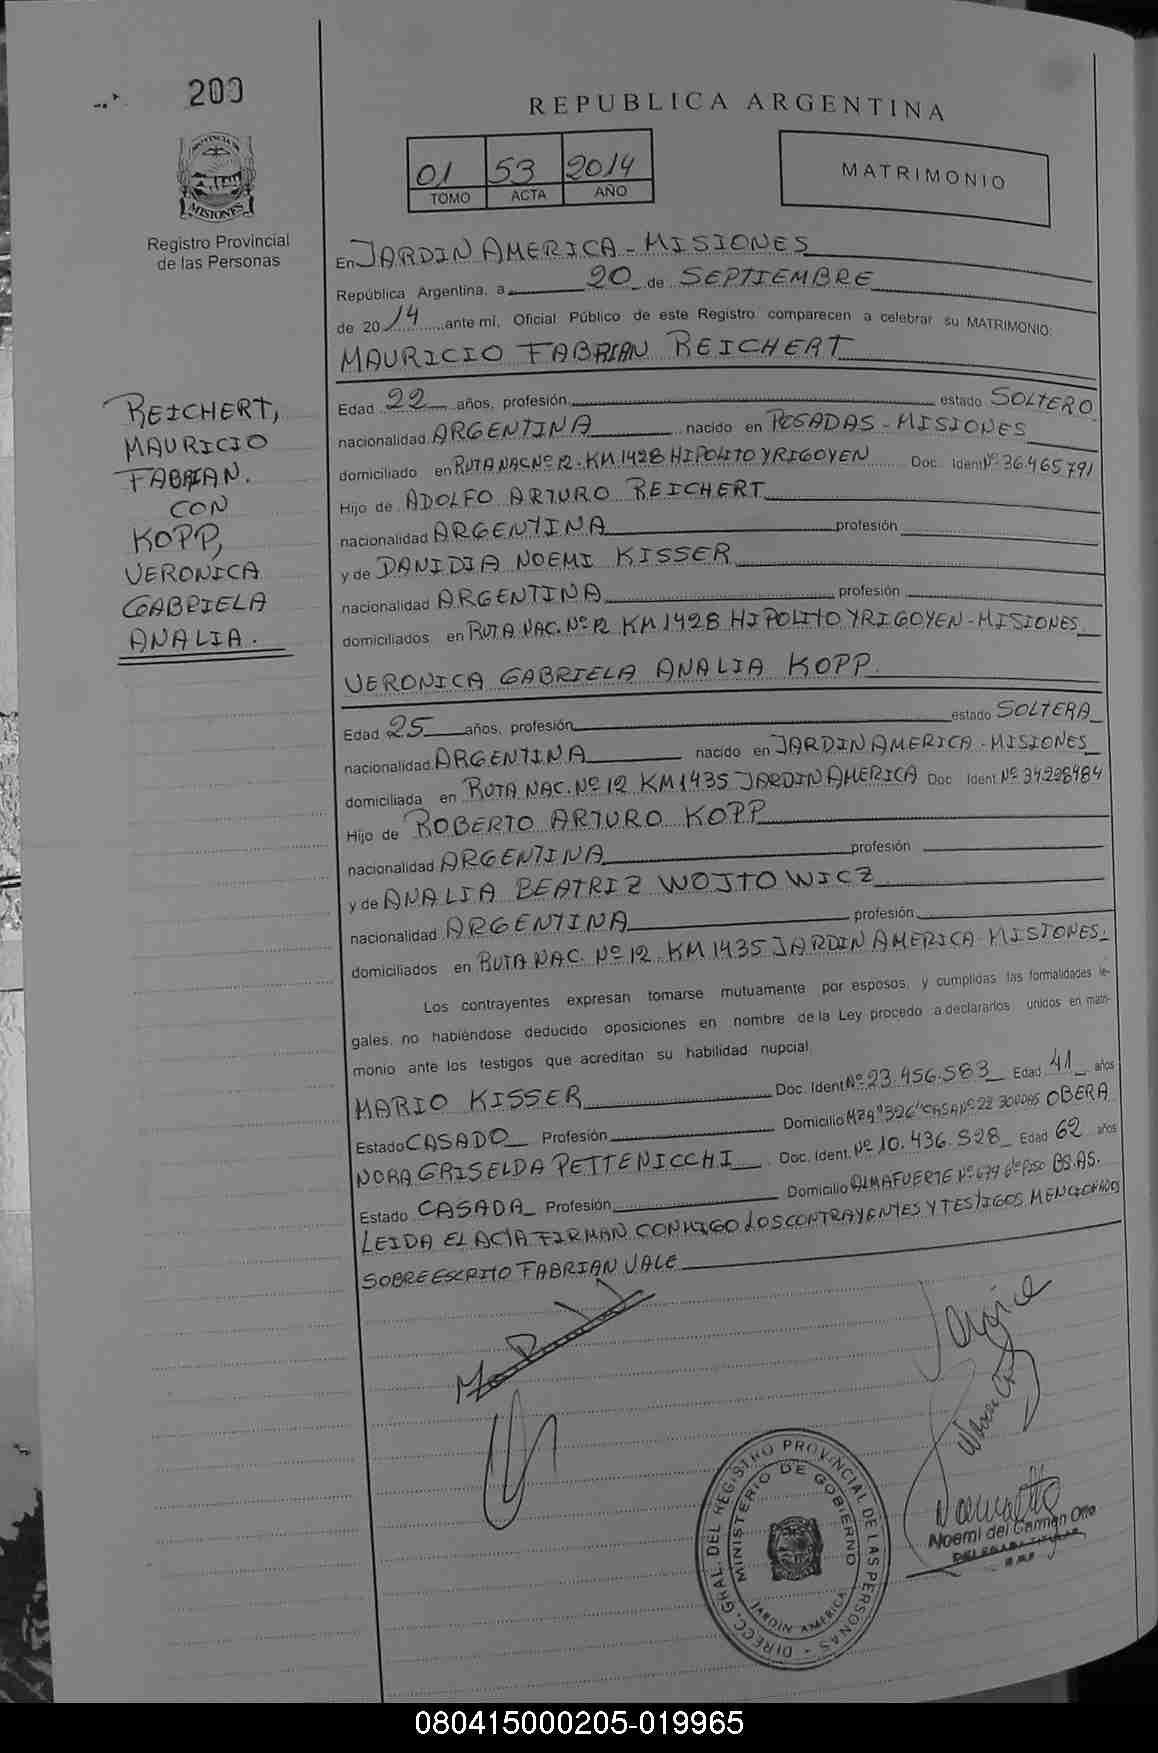 200
PROVINCIA DE
MISIONES
Registro Provincial
de las Personas
REPUBLICA ARGENTINA
01 53 2014
TOMO ACTA AÑO
MATRIMONIO
En JARDIN AMERICA - MISIONES
República Argentina, a 20 de SEPTIEMBRE
de 2014 ante mí, Oficial Público de este Registro comparecen a celebrar su MATRIMONIO:
MAURICIO FABRIAN REICHERT
REICHERT,
MAURICIO
FABRIAN.
CON
KOPP,
VERONICA
GABRIELA
ANALIA.
Edad 22 años, profesión estado SOLTERO
nacionalidad ARGENTINA nacido en POSADAS - MISIONES
domiciliado en RUTA NAC Nº 12 - KM 1428 HIPOLITO YRIGOYEN Doc. Ident Nº 36.465.791
Hijo de ADOLFO ARTURO REICHERT
nacionalidad ARGENTINA profesión
y de DANIDIA NOEMI KISSER
nacionalidad ARGENTINA profesión
domiciliados en RUTA NAC. Nº 12 KM 1428 HIPOLITO YRIGOYEN - MISIONES
VERONICA GABRIELA ANALIA KOPP
Edad 25 años, profesión estado SOLTERA
nacionalidad ARGENTINA nacido en JARDIN AMERICA - MISIONES
domiciliada en RUTA NAC. Nº 12 KM 1435 JARDIN AMERICA Doc Ident Nº 34228484
Hijo de ROBERTO ARTURO KOPP
nacionalidad ARGENTINA profesión
y de ANALIA BEATRIZ WOJTOWICZ
nacionalidad ARGENTINA profesión
domiciliados en RUTA NAC. Nº 12 KM 1435 JARDIN AMERICA - MISIONES.
Los contrayentes expresan tomarse mutuamente por esposos, y cumplidas las formalidades le-
gales, no habiéndose deducido oposiciones en nombre de la Ley procedo a declararlos unidos en matri-
monio ante los testigos que acreditan su habilidad nupcial.
MARIO KISSER Doc. Ident Nº 23.456.583 Edad 41 años
Estado CASADO Profesión Domicilio MZA "326" CASA Nº 22 300 VAS OBERA
NORA GRISELDA PETTENICCHI Doc. Ident. Nº 10.436.528 Edad 62 años
Estado CASADA Profesión Domicilio ALMAFUERTE Nº 679 6to PISO BS.AS.
LEIDA EL ACTA FIRMAN CONMIGO LOS CONTRAYENTES Y TESTIGOS MENCIONADOS
SOBREESCRITO FABRIAN VALE
DIRECC. GRAL. DEL REGISTRO PROVINCIAL DE LAS PERSONAS
MINISTERIO DE GOBIERNO
JARDIN AMERICA
Noemi del Carmen Otto
DELEGADA TITULAR
080415000205-019965